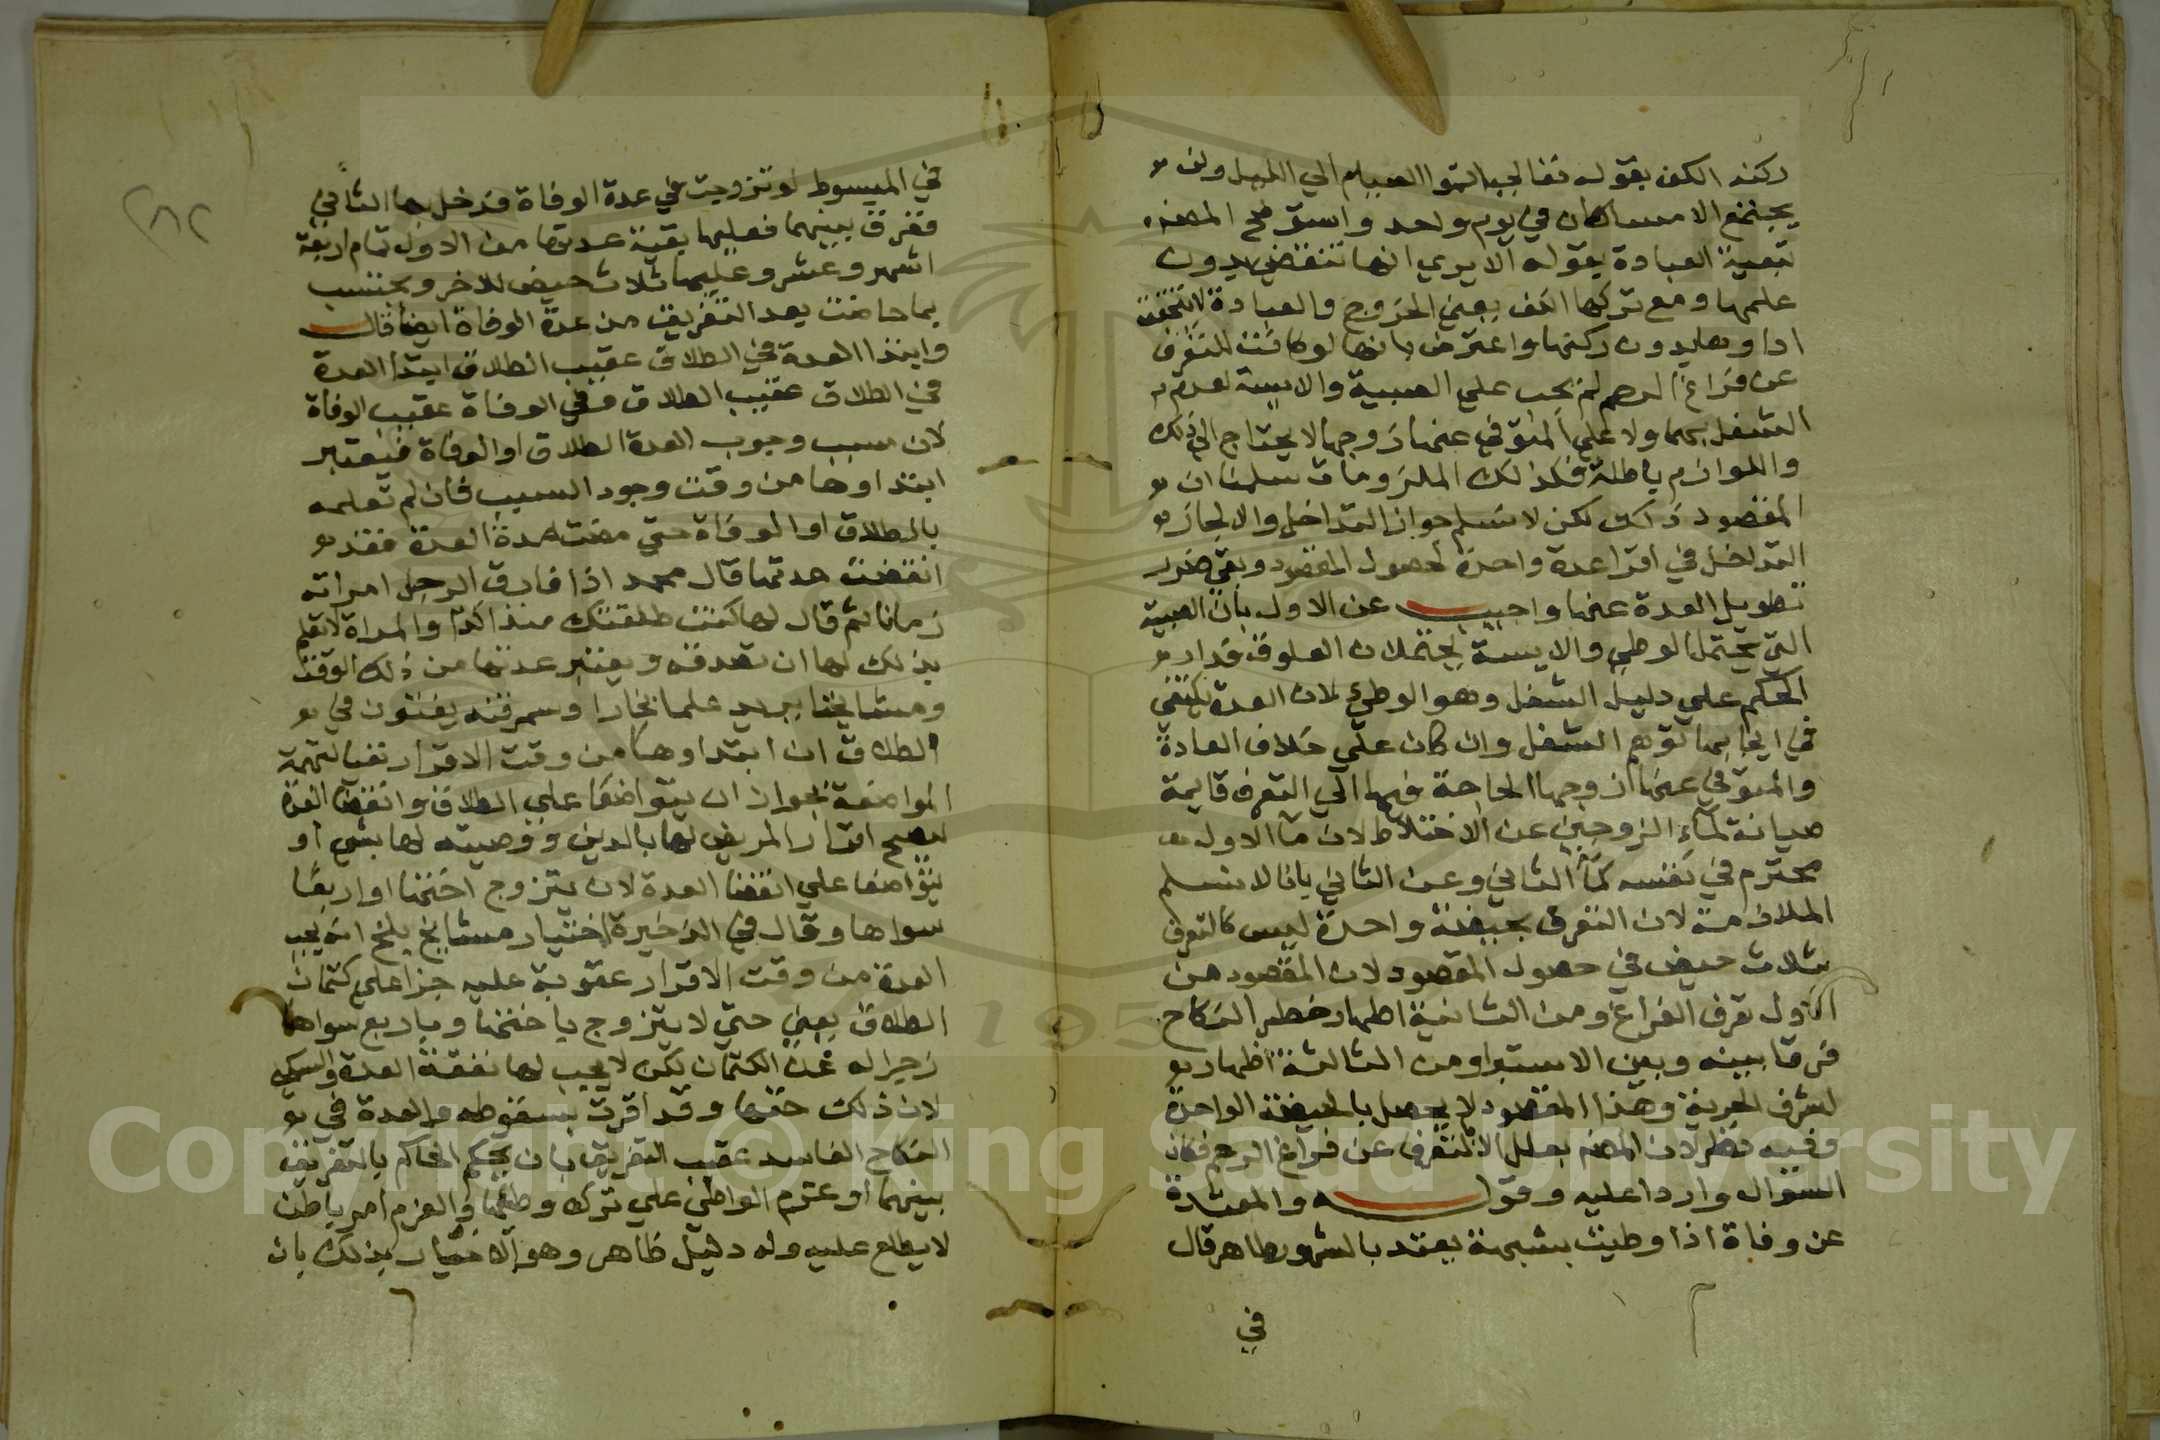 ركنه الكف بقوله تعالى ثم اتموا الصيام الي الليل ولن
يجتمع الامساكان في يوم واحد واستوضح المصنف
تبعية العبادة بقوله الا يري انها تنقضي بدون
علمها ومع تركها الكف بعني الخروج والعبادة لا تتحقق
اداوها بدون ركنها واعترض بانها لو كانت للتعرف
عن فراغ الرحم لم تجب علي الصبية والايسة لعدم
الشغل بهما ولا علي المتوفي عنها زوجها لا يحتاج الي ذلك
واللوازم باطلة فكذلك الملزومات سلمنا ان
المقصود ذلك لكن لا نسلم جواز التداخل والا لجاز
التداخل في اقرا عدة واحدة لحصول المقصود وبقي ضرر
تطويل العدة عنها واجيب عن الاول بان الصبية
التي تحتمل الوطي والايسة يحتملان العلوق فدار
الحكم علي دليل الشغل وهو الوطي لان العدة يكتفي
في ايجابها توهم الشغل وان كان علي خلاف العادة
والمتوفي عنها زوجها الحاجة فيها الي التعرف قايمة
صيانة لماء الزوجين عن الاختلاط لان ما الاول
محترم في نفسه كما الثاني وعن الثاني بانا لا نسلم
الملازمة لان التعرف بحيضة واحدة ليس كالتعرف
بثلاث حيض في حصول المقصود لان المقصود من
الاول تعرف الفراغ ومن الثانية اظهار خطر النكاح
فرقا بينه وبين الاستبرا ومن الثالثة اظهار
لشرف الحرية وهذا المقصود لا يحصل بالحيضة الواحدة
وفيه نظر لان المصنف يعلل الا للتعرف عن فراغ الرحم فكان
السوال واردا عليه وقوله والمعتدة
عن وفاة اذا وطيت بشبهة يعتد بالشهور ظاهر قال
في
٢٨٢
في المبسوط لو تزوجت في عدة الوفاة فدخل بها الثاني
ففرق بينهما فعليها بقية عدتها من الاول تمام اربعة
اشهر وعشر وعليها ثلاث حيض للاخر ويحتسب
بما حاضت بعد التفريق من عدة الوفاة ايضا قال
وابتدا العدة في الطلاق عقيب الطلاق ابتدا العدة
في الطلاق عقيب الطلاق وفي الوفاة عقيب الوفاة
لان سبب وجوب العدة الطلاق او الوفاة فيعتبر
ابتداوها من وقت وجود السبب فان لم تعلمه
بالطلاق او الوفاة حتي مضت مدة العدة فقد
انقضت عدتها قال محمد اذا فارق الرجل امراته
زمانا ثم قال لها كنت طلقتك منذ كذا والمراة لا تعلم
بذلك لها ان تصدقه ويعتبر عدتها من ذلك الوقت
ومشايخنا يريد علما بخارا وسمرقند يفتون في
الطلاق ان ابتداوها من وقت الاقرار نفيا لتهمة
المواضعة بجواز ان يتواضعا علي الطلاق وانقضا العدة
ليصح اقرار المريض لها بالدين ووصيته لها بشي او
يتواضعا علي انقضا العدة لان يتزوج اختها او اربعا
سواها وقال في الذخيرة اختيار مشايخ بلخ انه يجب
العدة من وقت الاقرار عقوبة عليه جزا علي كتمان
الطلاق يعني حتي لا يتزوج باختها وباربع سواها
زجرا له عن الكتمان لكن لا يجب لها نفقة العدة والسكني
لان ذلك حقها وقد اقرت بسقوطه والعدة في
النكاح الفاسد عقيب التفريق بان يحكم الحاكم بالتفريق
بينهما او عزم الواطي علي ترك وطئها والعزم امر باطن
لا يطلع عليه وله دليل ظاهر وهو الاخبار بذلك بان
Copyright © King Saud University
195